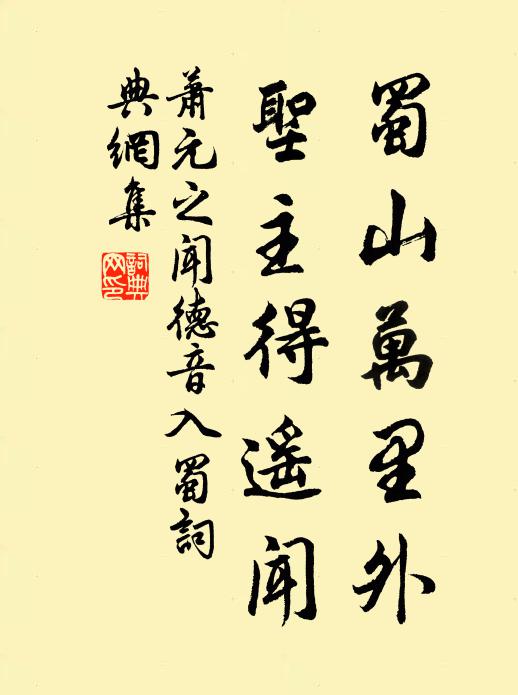 蜀山萬里外
聖主得遥聞
蕭元之聞德音入蜀詞
典網集
詞典网印